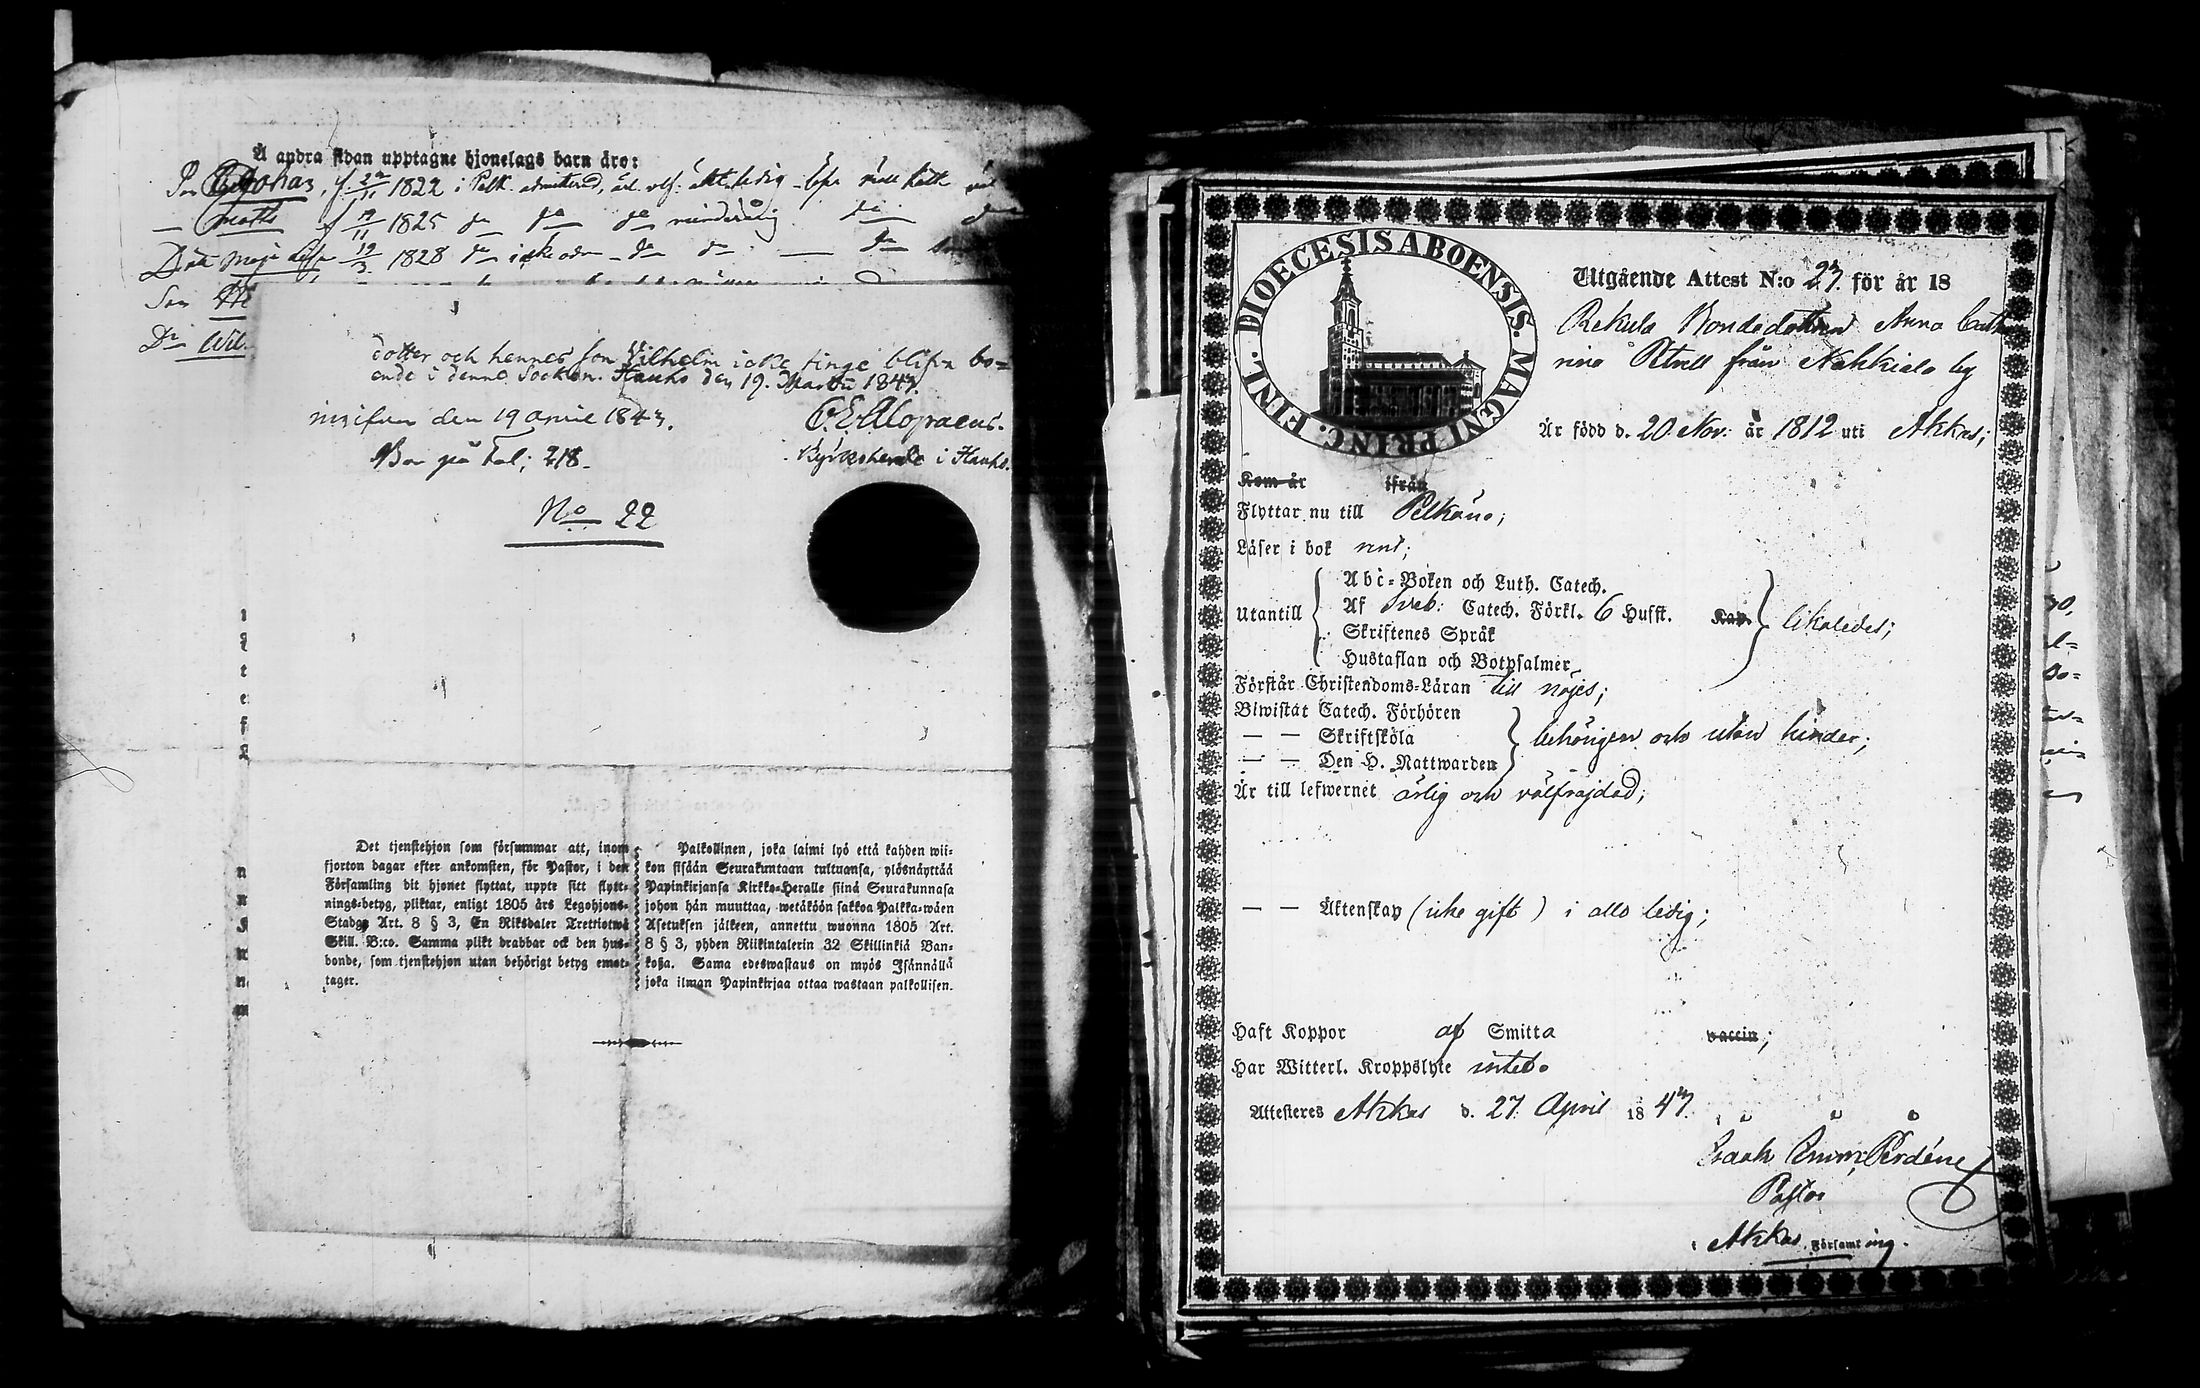 Å andra sidan upptagne hjonelags barn äro:
Johan, f. 1822 i Pelk. admitterad, ärl. ledig
Matts f 19/11 1825 do do do minderårig do
Maja Lisa 19/3 1828 do icke adm do do do
Son
Dr Wil
dotter och hennes son Wilhelm icke finge blifva bo=
ende i denne Socken. Hauho den 19. Martii 1843.
C. E. Alopraeus.
Kyrkoherde i Hauho.
ingifven den 19 April 1843.
Bor på Fol; 218.
No 22
Det tjenstehjon som försummar att, inom
fjorton dagar efter ankomsten, för Pastor, i den
Församling dit hjonet flyttat, uppte sitt flytt-
nings-betyg, pliktar, enligt 1805 års Legohjons-
Stadga Art. 8 § 3, En Riksdaler Trettiotwå
Skill. B:co. Samma plikt drabbar ock den hus-
bonde, som tjenstehjon utan behörigt betyg emot-
tager.
Palkollinen, joka laimi lyö että kahden wii-
kon sisään Seurakuntaan tultuansa, ylösnäyttää
Papinkirjansa Kirkko-Heralle siinä Seurakunnasa
johon hän muuttaa, wetäköön sakkoa Palkka-wäen
Asetuksen jälkeen, annettu wuonna 1805 Art.
8 § 3, yhden Riikintalerin 32 Skillinkiä Ban-
koßa. Sama edeswastaus on myös Isännällä
joka ilman Papinkirjaa ottaa wastaan palkollisen.
DIOECESIS ABOENSIS. MAGNI PRINC. FINL.
Utgående Attest N:o 23 för år 18
Rekula Bondedottren Anna Cath
rina Petrell från Nakkiala by
Är född d. 20 Nov. år 1812 uti Akkas;
Kom år ifrån
Flyttar nu till Pelkäne;
Läser i bok rent;
Utantill
Abc-Boken och Luth. Catech.
Af Sveb: Catech. Förkl. 6 Hufst. Kap.
Skriftenes Språk
Hustaflan och Botpsalmer
likaledes;
Förstår Christendoms-Läran till nöjes;
Biwistat Catech. Förhören
— — Skriftskola
— — Den H. Nattwarden
behörigen och utan hinder;
Är till lefwernet ärlig och välfrajdad;
— — Äktenskap (icke gift) i allo ledig;
Haft Koppor af Smitta vaccin;
Har Witterl. Kroppslyte intet.
Attesteres Akkas d. 27 April 1843.
Isaak Emm: Perdéne
Pastor
i Akkas Församling.